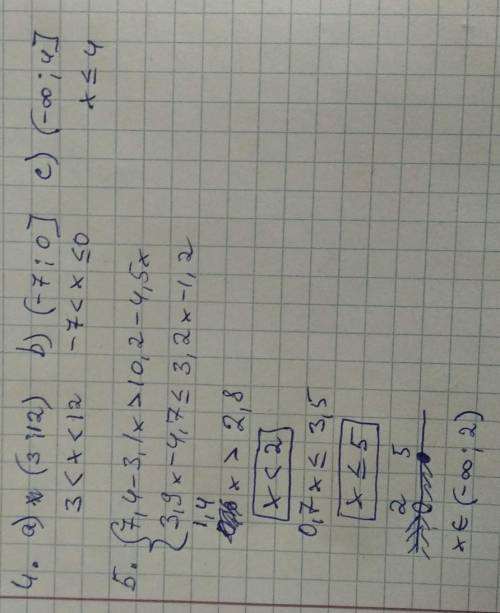 4. a) (3;12) b) (-7;0] c) (-∞;4]
3<x<12 -7<x≤0 x≤4
5. {7,4-3,1x>10,2-4,5x
{3,9x-4,7≤3,2x-1,2
1,4x>2,8
x<2
0,7x≤3,5
x≤5
2 5
x∈(-∞;2)